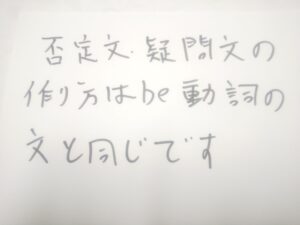 否定文・疑問文の
作り方はbe動詞の
文と同じです